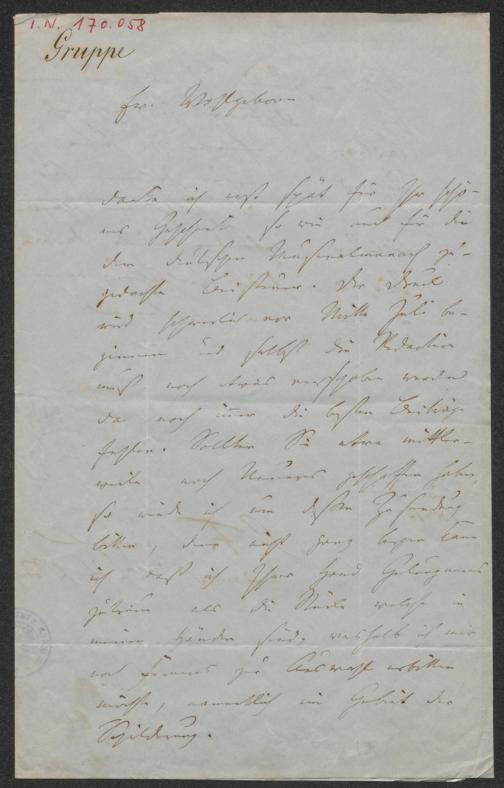 I.N. 170.058
Gruppe
Ew. Wohlgeboren
danke ich erst spät für Ihr schö-
nes Geschenk so wie auch für die
dem deutschen Musenalmanach zu-
gedachte Beisteuer. Der Druck
wird schwerlich vor Mitte Juli be-
ginnen und selbst die Redaction
muß noch etwas verschoben werden
da noch immer die besten Beiträge
fehlen. Sollten Sie etwa mittler-
weile noch Neueres geschaffen haben,
so würde ich um dessen Zusendung
bitten, denn nicht ganz bergen kann
ich daß ich Ihrer Hand Gelungeneres
zutraue als die Stücke welche in
meinen Händen sind, weshalb ich mir
noch Ferneres zur Auswahl erbitten
möchte, namentlich im Gebiet der
Schilderung.